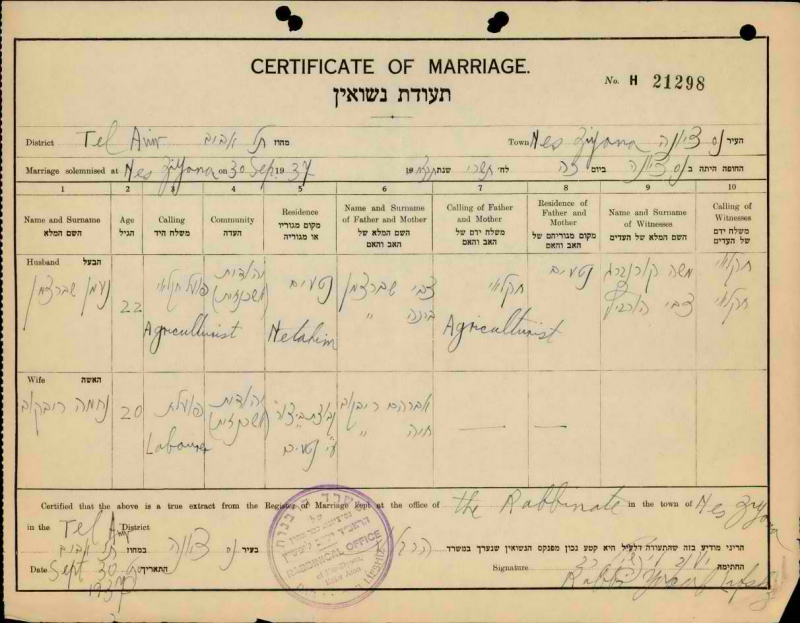 CERTIFICATE OF MARRIAGE.
No. H 21298
תעודת נשואין
District Tel Aviv תל אביב מחוז Town Nes Ziyona נס ציונה העיר
Marriage solemnised at Nes Ziyona on 30 Sep. 1937 לח' תשרי שנת ביום החופה היתה ב נס ציונה
1 2 3 4 5 6 7 8 9 10
Name and Surname השם המלא
Age הגיל
Calling משלח היד
Community העדה
Residence מקום מגוריו או מגוריה
Name and Surname of Father and Mother השם המלא של האב והאם
Calling of Father and Mother משלח ידם של האב והאם
Residence of Father and Mother מקום מגוריהם של האב והאם
Name and Surname of Witnesses השם המלא של העדים
Calling of Witnesses משלח ידם של העדים
Husband הבעל
נעמן שברצמן
22
פועל חקלאי
Agriculturist
יהדות (אשכנזית)
נטעים
Netahim
צבי שברצמן
בינה "
חקלאי
Agriculturist
נטעים
משה
צבי
חקלאי
חקלאי
Wife האשה
נחמה ריבקוב
20
פועלת
Labourer
יהדות (אשכנזית)
ע"י נטעים
אברהם ריבקוב
חיה "
— —
Certified that the above is a true extract from the Register of Marriage kept at the office of the Rabbinate in the town of Nes Ziyona
in the Tel Aviv District
הריני מודיע בזה שהתעודה דלעיל היא קטע נכון מפנקס הנשואין שנערך במשרד הרבנות בעיר נס ציונה במחוז תל אביב
Date Sept 30 1937 התאריך
Signature Rabbi החתימה
RABBINICAL OFFICE